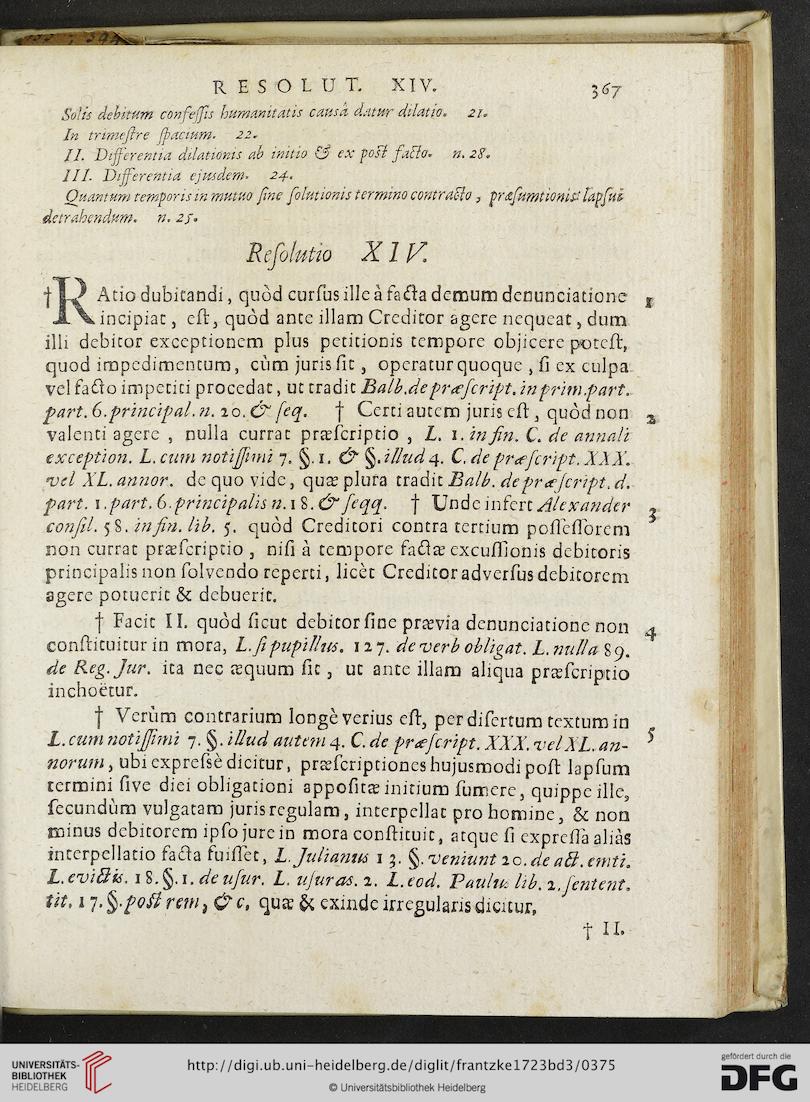 RESOLUT. XIV. 367
Solis debitum confeſſis humanitatis causâ datur dilatio. 21.
In trimeſtre ſpacium. 22.
II. Differentia dilationis ab initio & ex poſt facto. n. 28.
III. Differentia ejusdem. 24.
Quantum temporis in mutuo ſine ſolutionis termino contracto, præſumtionis lapſui
detrahendum. n. 25.
Reſolutio XIV.
† RAtio dubitandi, quòd curſus ille à facta demum denunciatione 1
incipiat, eſt, quòd ante illam Creditor agere nequeat, dum
illi debitor exceptionem plus petitionis tempore objicere poteſt,
quod impedimentum, cùm juris ſit, operatur quoque, ſi ex culpa
vel facto impetiti procedat, ut tradit Balb. de præſcript. in prim. part.
part. 6. principal. n. 20. & ſeq. † Certi autem juris eſt, quòd non 2
valenti agere, nulla currat præſcriptio, L. 1. in fin. C. de annali
exception. L. cum notiſſimi 7. §. 1. & §. illud 4. C. de præſcript. XXX.
vel XL. annor. de quo vide, quæ plura tradit Balb. de præſcript. d.
part. 1. part. 6. principalis n. 18. & ſeqq. † Unde infert Alexander 3
conſil. 58. in fin. lib. 5. quòd Creditori contra tertium poſſeſſorem
non currat præſcriptio, niſi à tempore factæ excuſſionis debitoris
principalis non ſolvendo reperti, licèt Creditor adverſus debitorem
agere potuerit & debuerit.
† Facit II. quòd ſicut debitor ſine prævia denunciatione non 4
conſtituitur in mora, L. ſi pupillus. 127. de verb obligat. L. nulla 89.
de Reg. Jur. ita nec æquum ſit, ut ante illam aliqua præſcriptio
inchoëtur.
† Verùm contrarium longè verius eſt, per diſertum textum in
L. cum notiſſimi 7. §. illud autem 4. C. de præſcript. XXX. vel XL. an- 5
norum, ubi expreſsè dicitur, præſcriptiones hujusmodi poſt lapſum
termini ſive diei obligationi appoſitæ initium ſumere, quippe ille,
ſecundùm vulgatam juris regulam, interpellat pro homine, & non
minus debitorem ipſo jure in mora conſtituit, atque ſi expreſſa aliàs
interpellatio facta fuiſſet, L. Julianus 13. §. veniunt 20. de act. emti.
L. evictis. 18. §. 1. de uſur. L. uſuras. 2. L. eod. Paulus lib. 2. ſentent.
tit. 17. §. poſt rem, & c. quæ & exinde irregularis dicitur,
† II.
UNIVERSITÄTS-
BIBLIOTHEK
HEIDELBERG
http://digi.ub.uni-heidelberg.de/diglit/frantzke1723bd3/0375
© Universitätsbibliothek Heidelberg
gefördert durch die
DFG